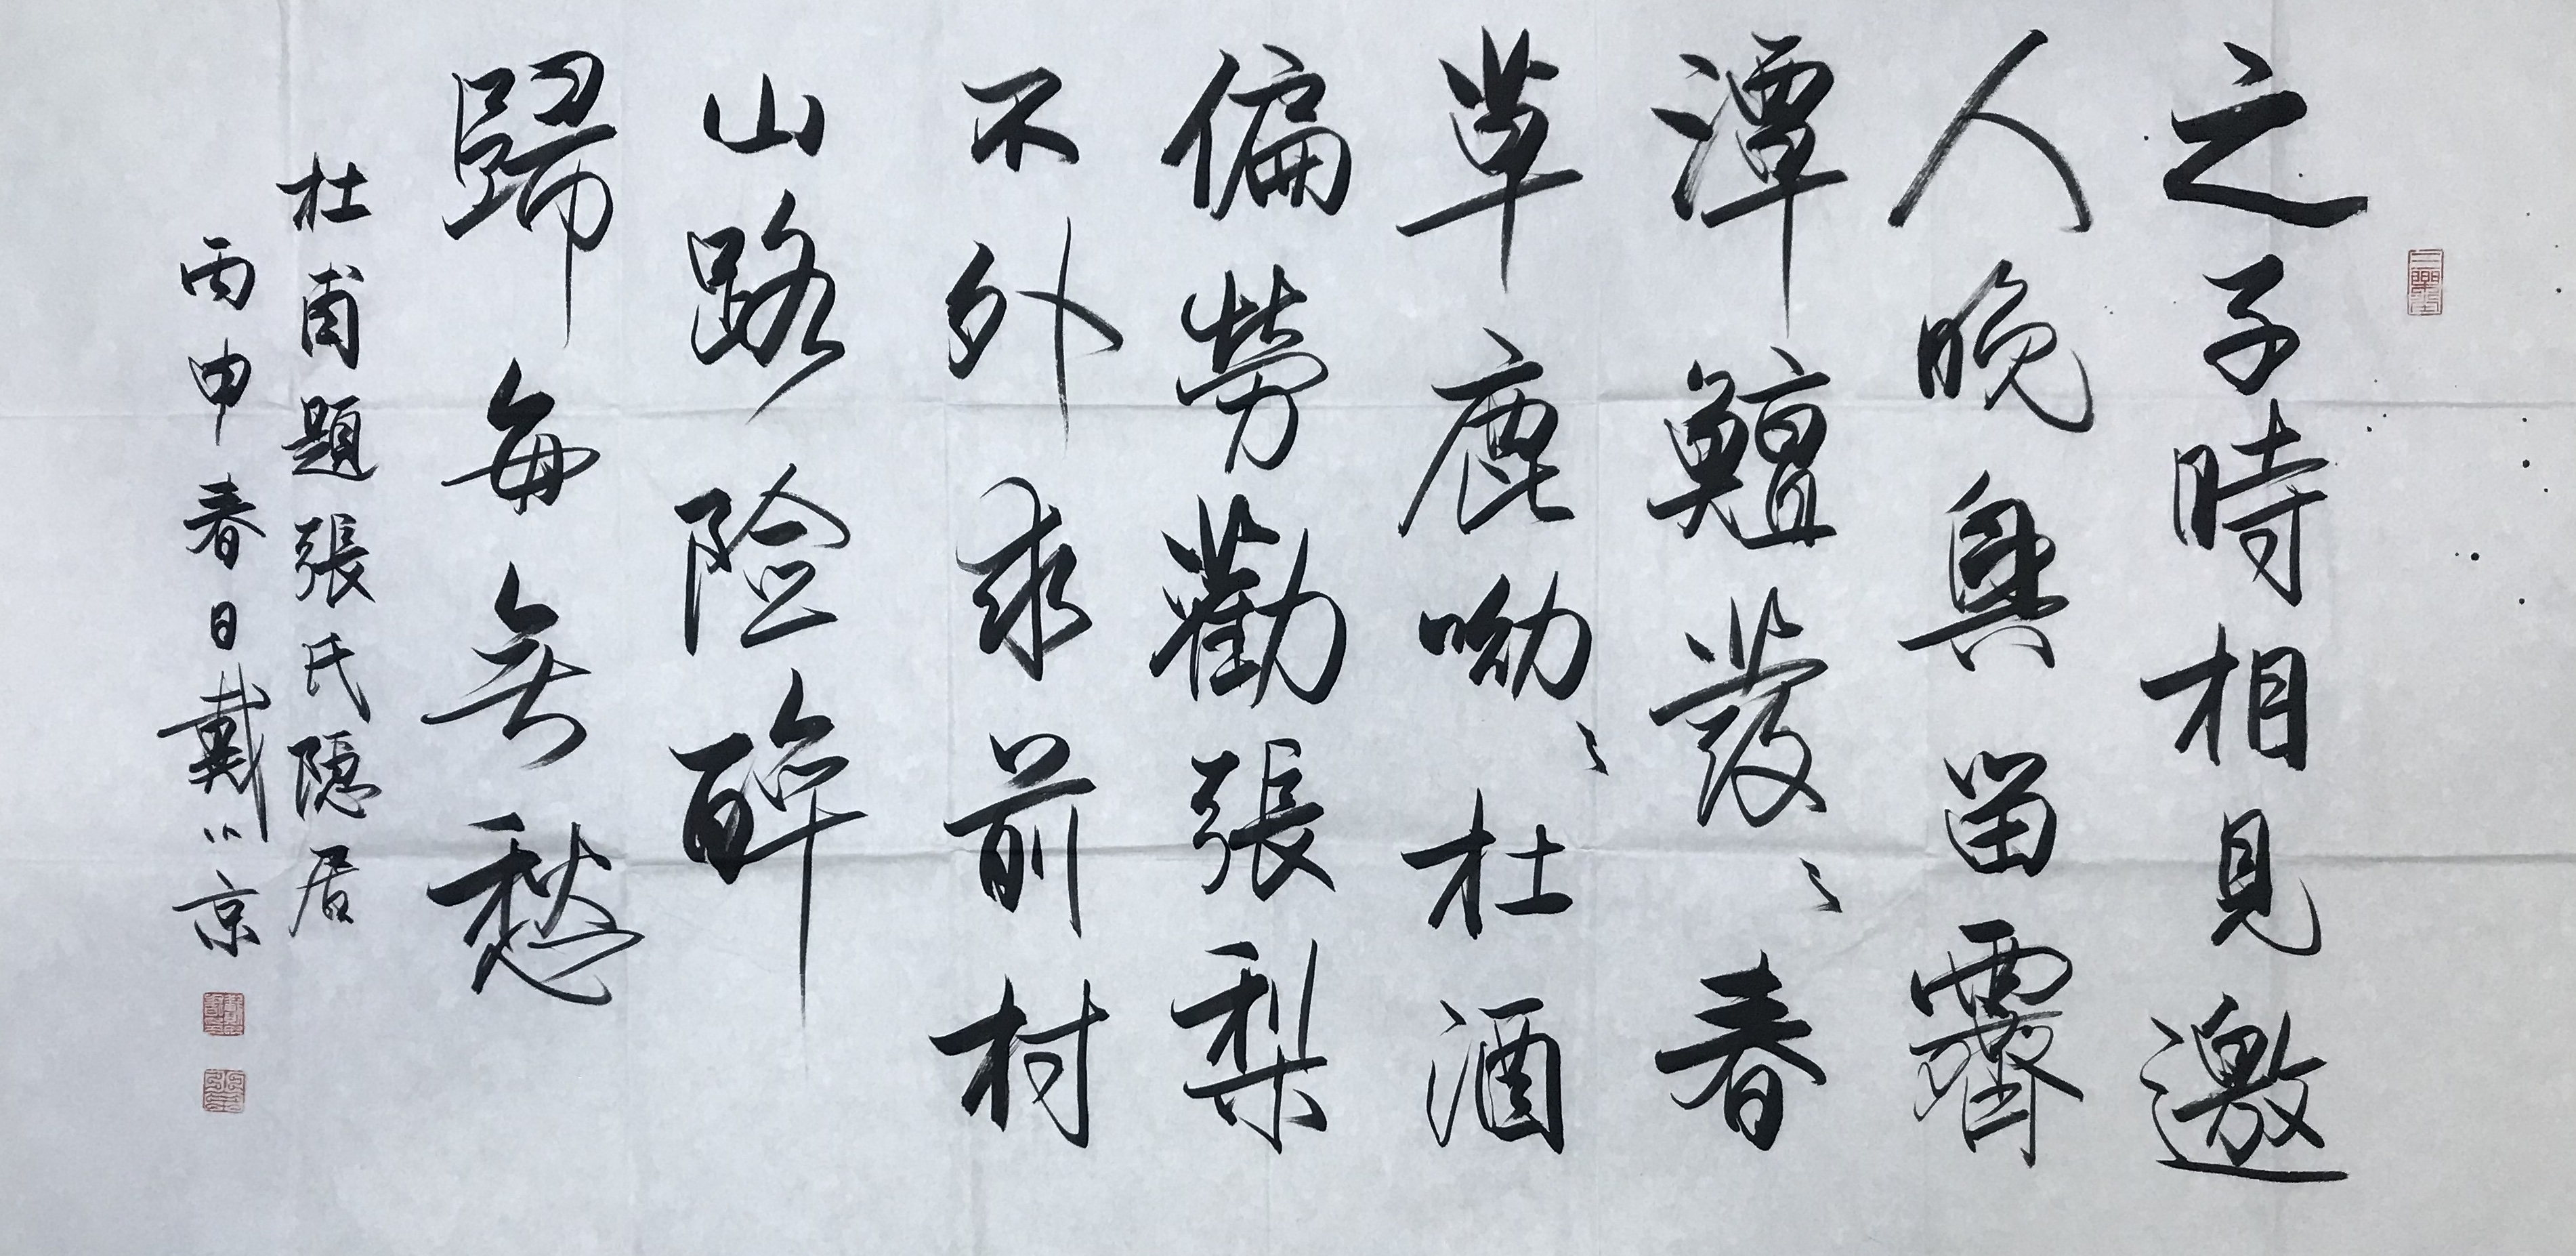 之子時相見邀
人晚興留霽
潭鱣發〻春
草鹿呦〻杜酒
偏勞勸張梨
不外求前村
山路险醉
歸每無愁
杜甫題張氏隱居
丙申春日戴小京